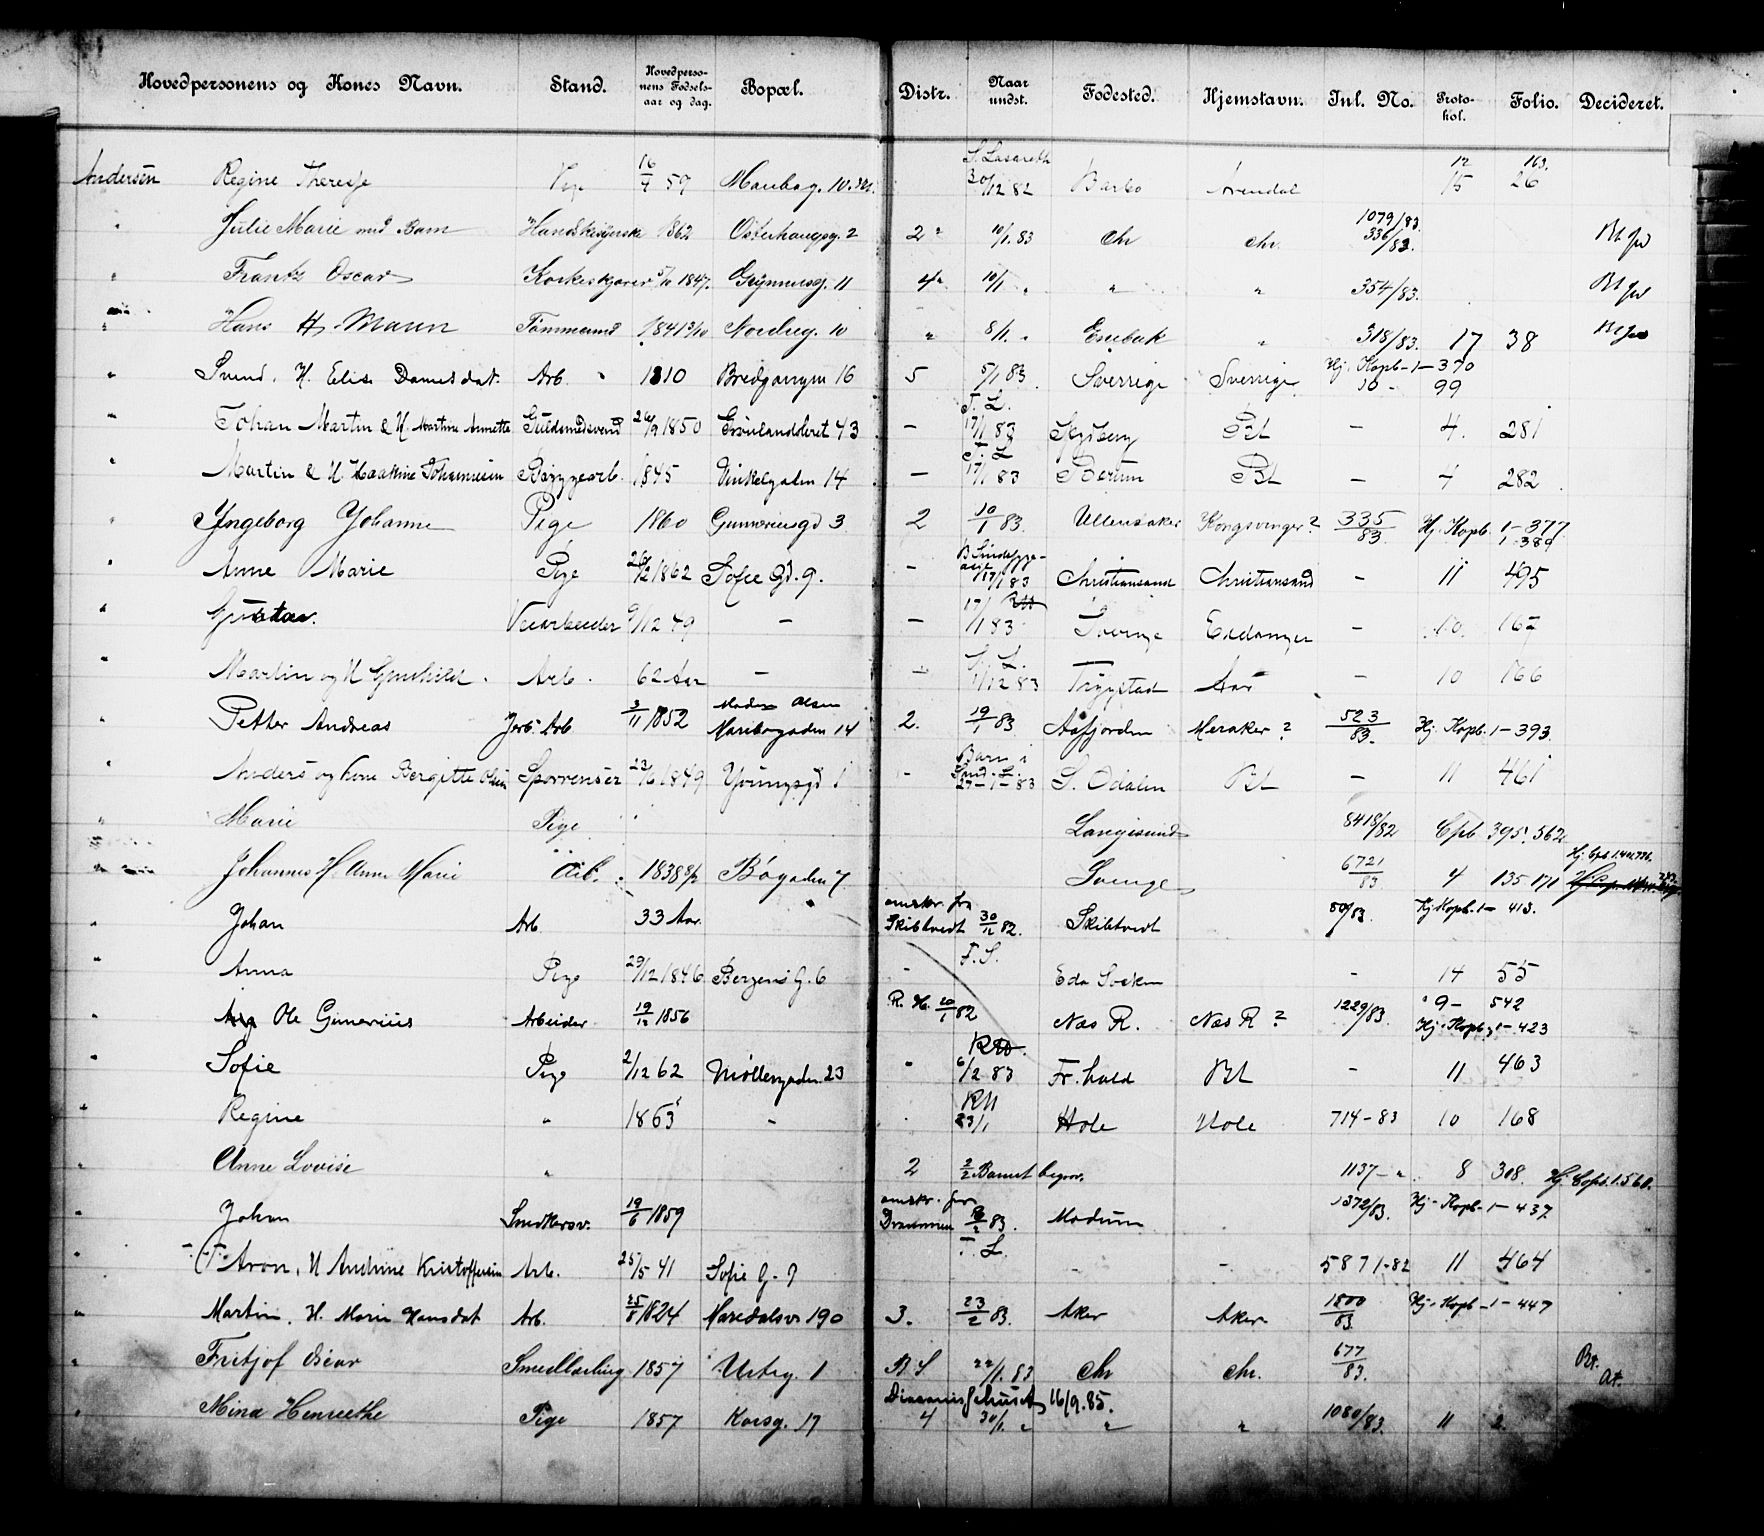 Hovedpersonens og Kones Navn. Stand. Hovedpersonens Fødselsaar og dag. Bopæl. Distr. Naar undst. Fødested. Hjemstavn. Jnl. No. Protokol. Folio. Decideret.
Andersen Regine Therese 16/7 59 S. Lasareth 30/12 82 Barbo Arendal 12 163. 15 26
" Julie Marie med Barn 1862 Osterhausg. 2 2 " 10/1. 83 Chr Chr. 1079/83. 336/83.
" Frantz Oscar Korkeskjærer 5/10 1847. Grünnersg. 11 4 " 10/1 " " " 354/83.
" Hans Tømmermd 1841 Nordreg. 10 " 8/1. " Enebak " 318/83. 17 38
" Svend. H. Elise Danielsdat. Arb. 1810 Bredgangen 16 5 5/1 83 Sverrige Sverrige Hj. Kopb-1-370 10 - 99
" Johan Martin & H. Martine Annette Guldsmedsvend 26/9 1850 Grønlandsleret 43 - T. L. 17/1 83 Bl - 4. 281
" Martin & H. Maakine Johannesen Bryggearb. 1845 Vinkelgaden 14 - T. L 17/1 83 Bærum Bl - 4 282
" Ingeborg Johanne Pige 1860 Gunneriusgd 3 2 10/1 83. Ullensaker Kongsvinger? 335/83 Hj. Kopb. 1-377 1-389
" Anne Marie Pige 26/2 1862 Sofie Gd. 9. - 17/1 83 Christiansand Christiansand - 11 495
" Gustav. Veiarbeider 9/12 49 - - 17/1 83 Sverige - 10. 167
" Martin og H Gunhild. Arb. 62 Aar - - S. L. 1/12 83 Trygstad Aas - 10 166
" Petter Andreas Jerb. Arb. 3/11 1852 Madam Olsen Maribogaden 14 2. 19/1 83 Aafjorden Meraker? 523/83. Hj. Kopb. 1-393.
" Anders og kone Bergitte Olsen Sporrenser 23/6 1849 Youngsgd 1 - Barn i Sind. L. 27-1-83 S. Odalen Bl - 11 461
" Marie Pige Langesund 8418/82 Cpb 395. 562
" Johannes H. Anne Marie Arb. 1838 8/2 Bøgaden 7 Sverige 6721/83 4 135 171 Hj. Cpb.
" Johan Arb. 33 Aar. omskr. fra Skibtvedt 30/12 82. Skibtvedt 50/83. Hj. Kopb. 1- 413.
" Anna Pige 29/12 1846 Bergens G. 6 - F. S. Eda Sokn - 14 55
" Ole Gunerius Arbeider 19/12 1856 R. H. 20/1 82 Næs R. Næs R? 1229/83. 9- 542 Hj. Kopb. 1-423
" Sofie Pige 2/12 62 Møllergaden 23 " 6/2 83 Fr. hald Bl - 11 463
" Regine " 1863 - RH 23/1 Hole Hole 714-83 10 168
" Anne Lovise " 2 2/2 Barnet begrav. 1137-" 8 308. Hj. Copb. 1. 560.
" Johan Smedkersv. 19/6 1859 omskr. fra Drammen 83. Modum 1372/83. Hj. Kopb. 1-437
Aron, H Andrine Kristoffersen Arb. 25/5 41 Sofie G. 9 T. L. - - 5871-82 11 464
" Martin, H. Marie Hansdat Arb. 25/8 1824 Maridalsv 190 3. 23/2 83. Aker Aker 1800/83 Hj. Kopb-1-447
" Fritjof Oscar Smedlærling 1857 Urteg. 1 B S 22/1. 83 Chr Chr. 677/83.
" Mina Henriethe Pige 1857 Korsg. 17 4 16/9. 85. 30/1. " " " 1080/83. 11 2.